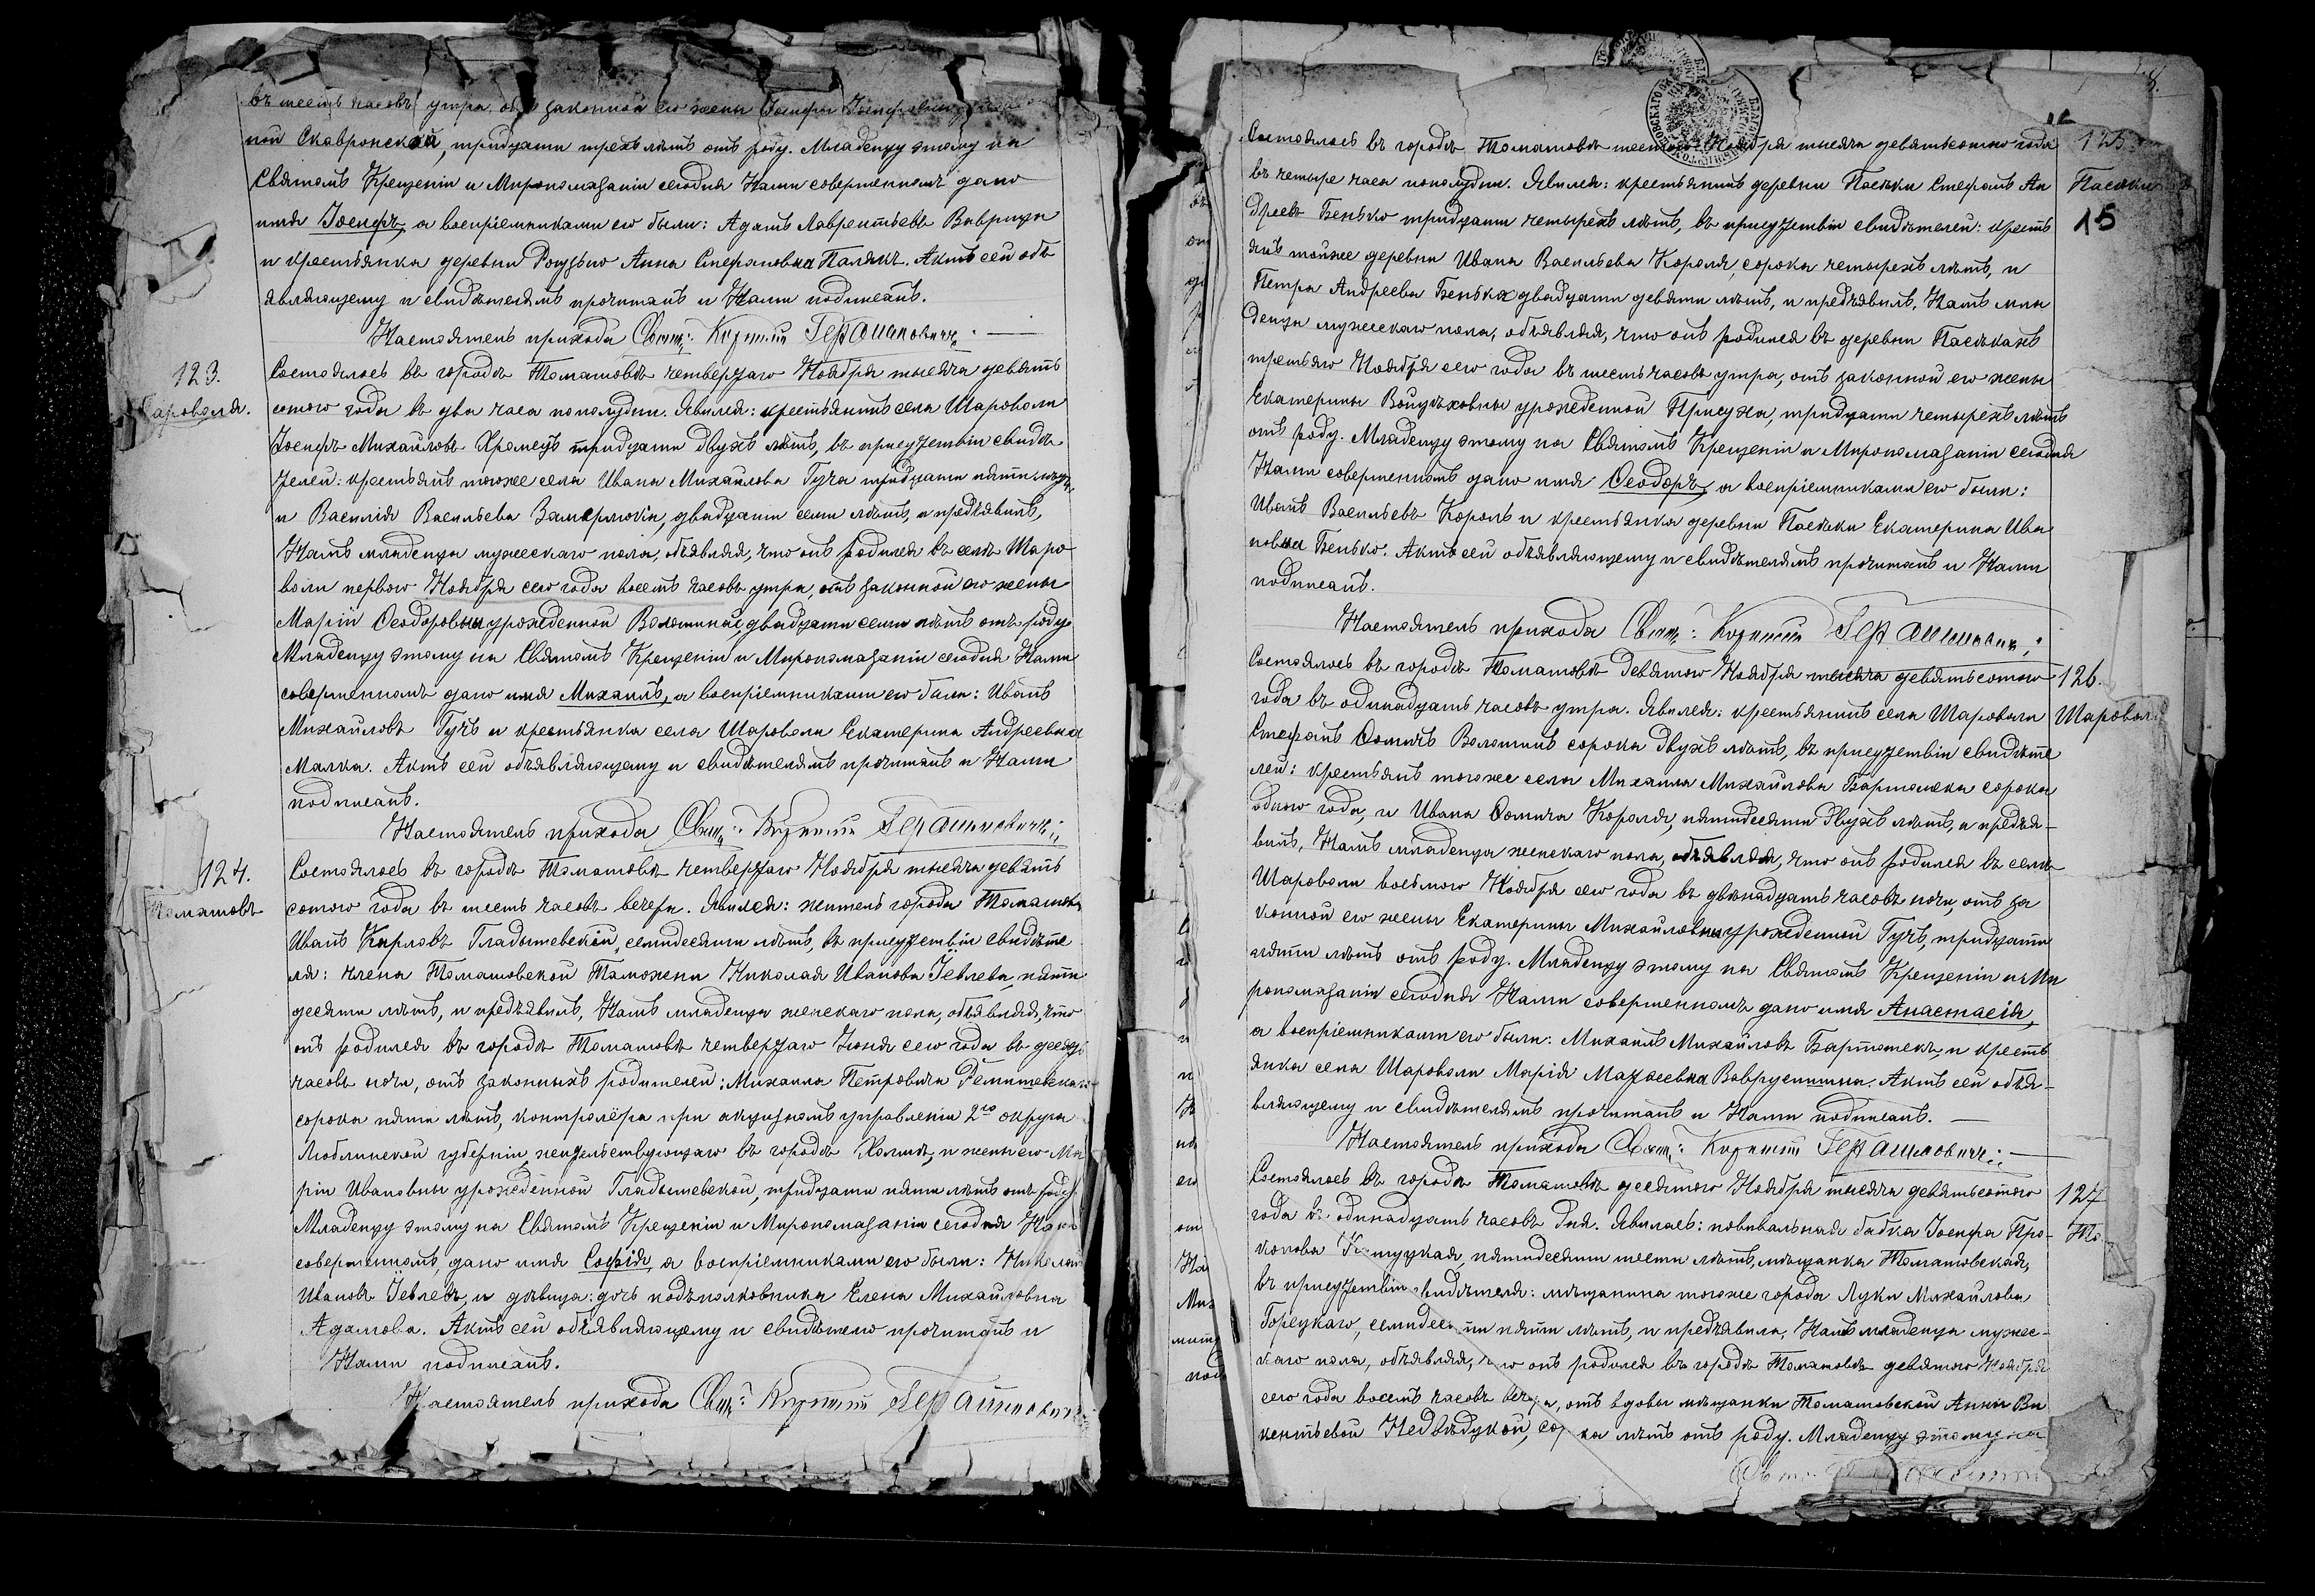 въ шесть часовъ утра, отъ законной его жены Іосифы Іосифовны
ной Скавронской, тридцати трехъ лѣтъ отъ роду. Младенцу этому на
Святомъ Крещеніи и Миропомазаніи сегодня Нами совершенномъ дано
имя Іосифъ, а воспріемниками его были: Адамъ Лаврентьевъ Ваврицы
и крестьянка деревни Анна Стефановна Палякъ. Актъ сей объ
являющему и свидѣтелямъ прочитанъ и Нами подписанъ.
Настоятель прихода Свящ: Корнилій Герашимовичъ
123.
Шароволя.
Состоялось въ городѣ Томашовѣ четвертаго Ноября тысяча девять
сотого года въ два часа пополудни. Явился: крестьянинъ села Шароволи
Іосифъ Михайловъ Хромецъ тридцати двухъ лѣтъ, въ присутствіи свидѣ
телей: крестьянъ тогоже села Ивана Михайлова Гуча тридцати пяти лѣтъ,
и Василія Васильева Замерлюка, двадцати семи лѣтъ, и предъявилъ,
Намъ младенца мужескаго пола, объявляя, что онъ родился въ селѣ Шаро
воли первого Ноября сего года восемь часовъ утра, отъ законной его жены
Маріи Ѳеодоровны урожденной Волошиной, двадцати семи лѣтъ отъ роду
Младенцу этому на Святомъ Крещеніи и Миропомазаніи сегодня Нами
совершенномъ дано имя Михаилъ, а воспріемниками его были: Иванъ
Михайловъ Гучъ и крестьянка села Шароволи Екатерина Андреевна
Малка. Актъ сей объявляющему и свидѣтелямъ прочитанъ и Нами
подписанъ.
Настоятель прихода Свящ: Корнилій Герашимовичъ
124.
Томашовъ
Состоялось въ городѣ Томашовѣ четвертаго Ноября тысяча девять
сотого года въ шесть часовъ вечера. Явился: житель города Томашова
Иванъ Карловъ Гладышевскій, семидесяти лѣтъ, въ присутствіи свидѣте
ля: члена Томашовской Таможни Николая Иванова Іевлева, пяти
десяти лѣтъ, и предъявилъ, Намъ младенца женскаго пола, объявляя, что
онъ родился въ городѣ Томашовѣ четвертаго Іюня сего года въ десять
часовъ ночи, отъ законныхъ родителей: Михаила Петровича
сорока пяти лѣтъ, контролёра при акцизномъ управленіи 2го округа
Люблинской губерніи, жительствующаго въ городѣ Холмѣ, и жены его Ма
ріи Ивановны урожденной Гладышевской, тридцати пяти лѣтъ отъ роду.
Младенцу этому на Святомъ Крещеніи и Миропомазаніи сегодня Нами
совершенномъ дано имя Софія, а воспріемниками его были: Николай
Ивановъ Іевлевъ, и дѣвица: дочь подъполковника Елена Михайловна
Адамова. Актъ сей объявляющему и свидѣтелю прочитанъ и
Нами подписанъ.
Настоятель прихода Свящ: Корнилій Герашимовичъ
125
Пасѣки
15
Состоялось въ городѣ Томашовѣ шестого Ноября тысяча девятьсотого года
въ четыре часа пополудни. Явился: крестьянинъ деревни Пасѣки Стефанъ Ан
дреевъ Бенько тридцати четырехъ лѣтъ, въ присутствіи свидѣтелей: кресть
янъ тойже деревни Ивана Васильева Короля, сорока четырехъ лѣтъ, и
Петра Андреева Бенька двадцати девяти лѣтъ, и предъявилъ, Намъ мла
денца мужескаго пола, объявляя, что онъ родился въ деревни Пасѣкахъ
третьяго Ноября сего года въ шесть часовъ утра, отъ законной его жены
Екатерины Войцѣховны урожденной Присужа, тридцати четырехъ лѣтъ
отъ роду. Младенцу этому на Святомъ Крещеніи и Миропомазаніи сегодня
Нами совершенномъ дано имя Ѳеодоръ, а воспріемниками его были:
Иванъ Васильевъ Король и крестьянка деревни Пасѣки Екатерина Ива
новна Бенько. Актъ сей объявляющему и свидѣтелямъ прочитанъ и Нами
подписанъ.
Настоятель прихода Свящ: Корнилій Герашимовичъ
126.
Шароволя
Состоялось въ городѣ Томашовѣ девятого Ноября тысяча девятьсотого
года въ одинадцать часовъ утра. Явился: крестьянинъ села Шароволи
Стефанъ Ѳомичъ Волошинъ сорока двухъ лѣтъ, въ присутствіи свидѣте
лей: крестьянъ тогоже села Михаила Михайлова Бартошека сорока
одного года, и Ивана Ѳомича Короля, пятидесяти двухъ лѣтъ, и предъя-
вилъ, Намъ младенца женскаго пола, объявляя, что онъ родился въ селѣ
Шароволи восьмого Ноября сего года въ двѣнадцать часовъ ночи, отъ за
конной его жены Екатерины Михайловны урожденной Гучъ, тридцати
пяти лѣтъ отъ роду. Младенцу этому на Святомъ Крещеніи и Ми
ропомазаніи сегодня Нами совершенномъ дано имя Анастасія,
а воспріемниками его были: Михаилъ Михайловъ Бартошекъ, и кресть
янка села Шароволи Марія Маѳеевна Ваврусишина. Актъ сей объя-
вляющему и свидѣтелямъ прочитанъ и Нами подписанъ.
Настоятель прихода Свящ: Корнилій Герашимовичъ
127
То
Состоялось въ городѣ Томашовѣ десятого Ноября тысяча девятьсотого
года въ одинадцать часовъ дня. Явилась: повивальная бабка Іосифа Про-
копова пятидесяти шести лѣтъ, мѣщанка Томашовская,
въ присутствіи свидѣтеля: мѣщанина тогоже города Луки Михайлова
Горецкаго, семидесяти пяти лѣтъ, и предъявила, Намъ младенца мужес-
каго пола, объявляя, что онъ родился въ городѣ Томашовѣ девятого Ноября
сего года восемь часовъ вечера, отъ вдовы мѣщанки Томашовской Анны Ви
кентьевой Недвѣдзкой, сорока лѣтъ отъ роду. Младенцу этому на